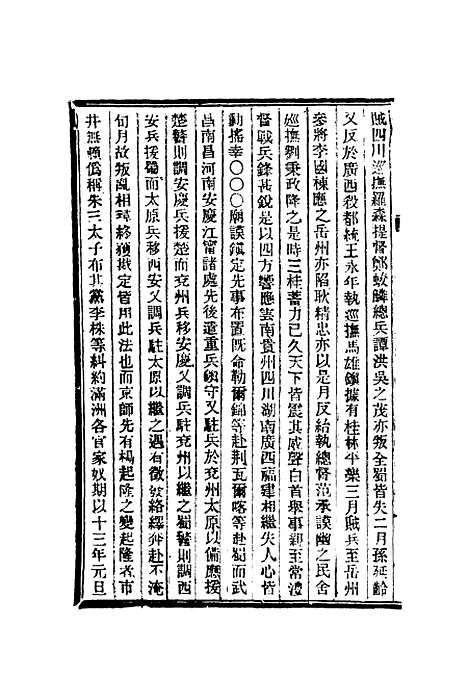 賊四川巡撫羅森提督鄭蛟麟總兵譚洪吳之茂亦叛全蜀皆失二月孫延齡
又反於廣西殺都統王永年執巡撫馬雄鎮據有桂林平樂三月賊兵至岳州
參將李國棟應之岳州亦陷耿精忠亦以是月反紿執總督范承謨幽之民舍
巡撫劉秉政降之是時三桂蓄力已久天下皆震其威聲白首舉事親至常澧
督戰兵鋒甚銳是以四方響應雲南貴州四川湖南廣西福建相繼失人心皆
動搖幸〇〇〇廟謨鎮定先事布置既命勒爾錦等赴荆瓦爾喀等赴蜀而武
昌南昌河南安慶江甯諸處先後遣重兵鎮守又駐兵於兗州太原以備應援
楚警則調安慶兵援楚而兗州兵移安慶又調兵駐兗州以繼之蜀警則調西
安兵援蜀而太原兵移西安又調兵駐太原以繼之遇有徵發絡繹奔赴不淹
旬月故叛亂相尋終獲戡定皆用此法也而京師先有楊起隆之變起隆者市
井無賴僞稱朱三太子布其黨李株等糾約滿洲各官家奴期以十三年元旦